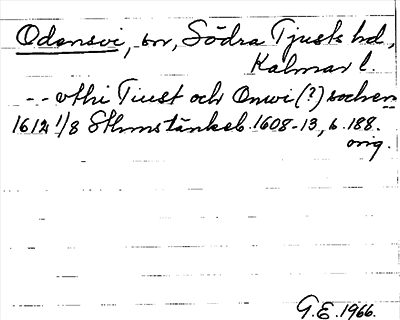 Odensvi, sn, Södra Tjusts hd,
Kalmar l.
-- vthi Tiust och Onwi (?) sochen
1612 1/8 Sthms tänkeb. 1608-13, b. 188.
orig.
G.E. 1966.